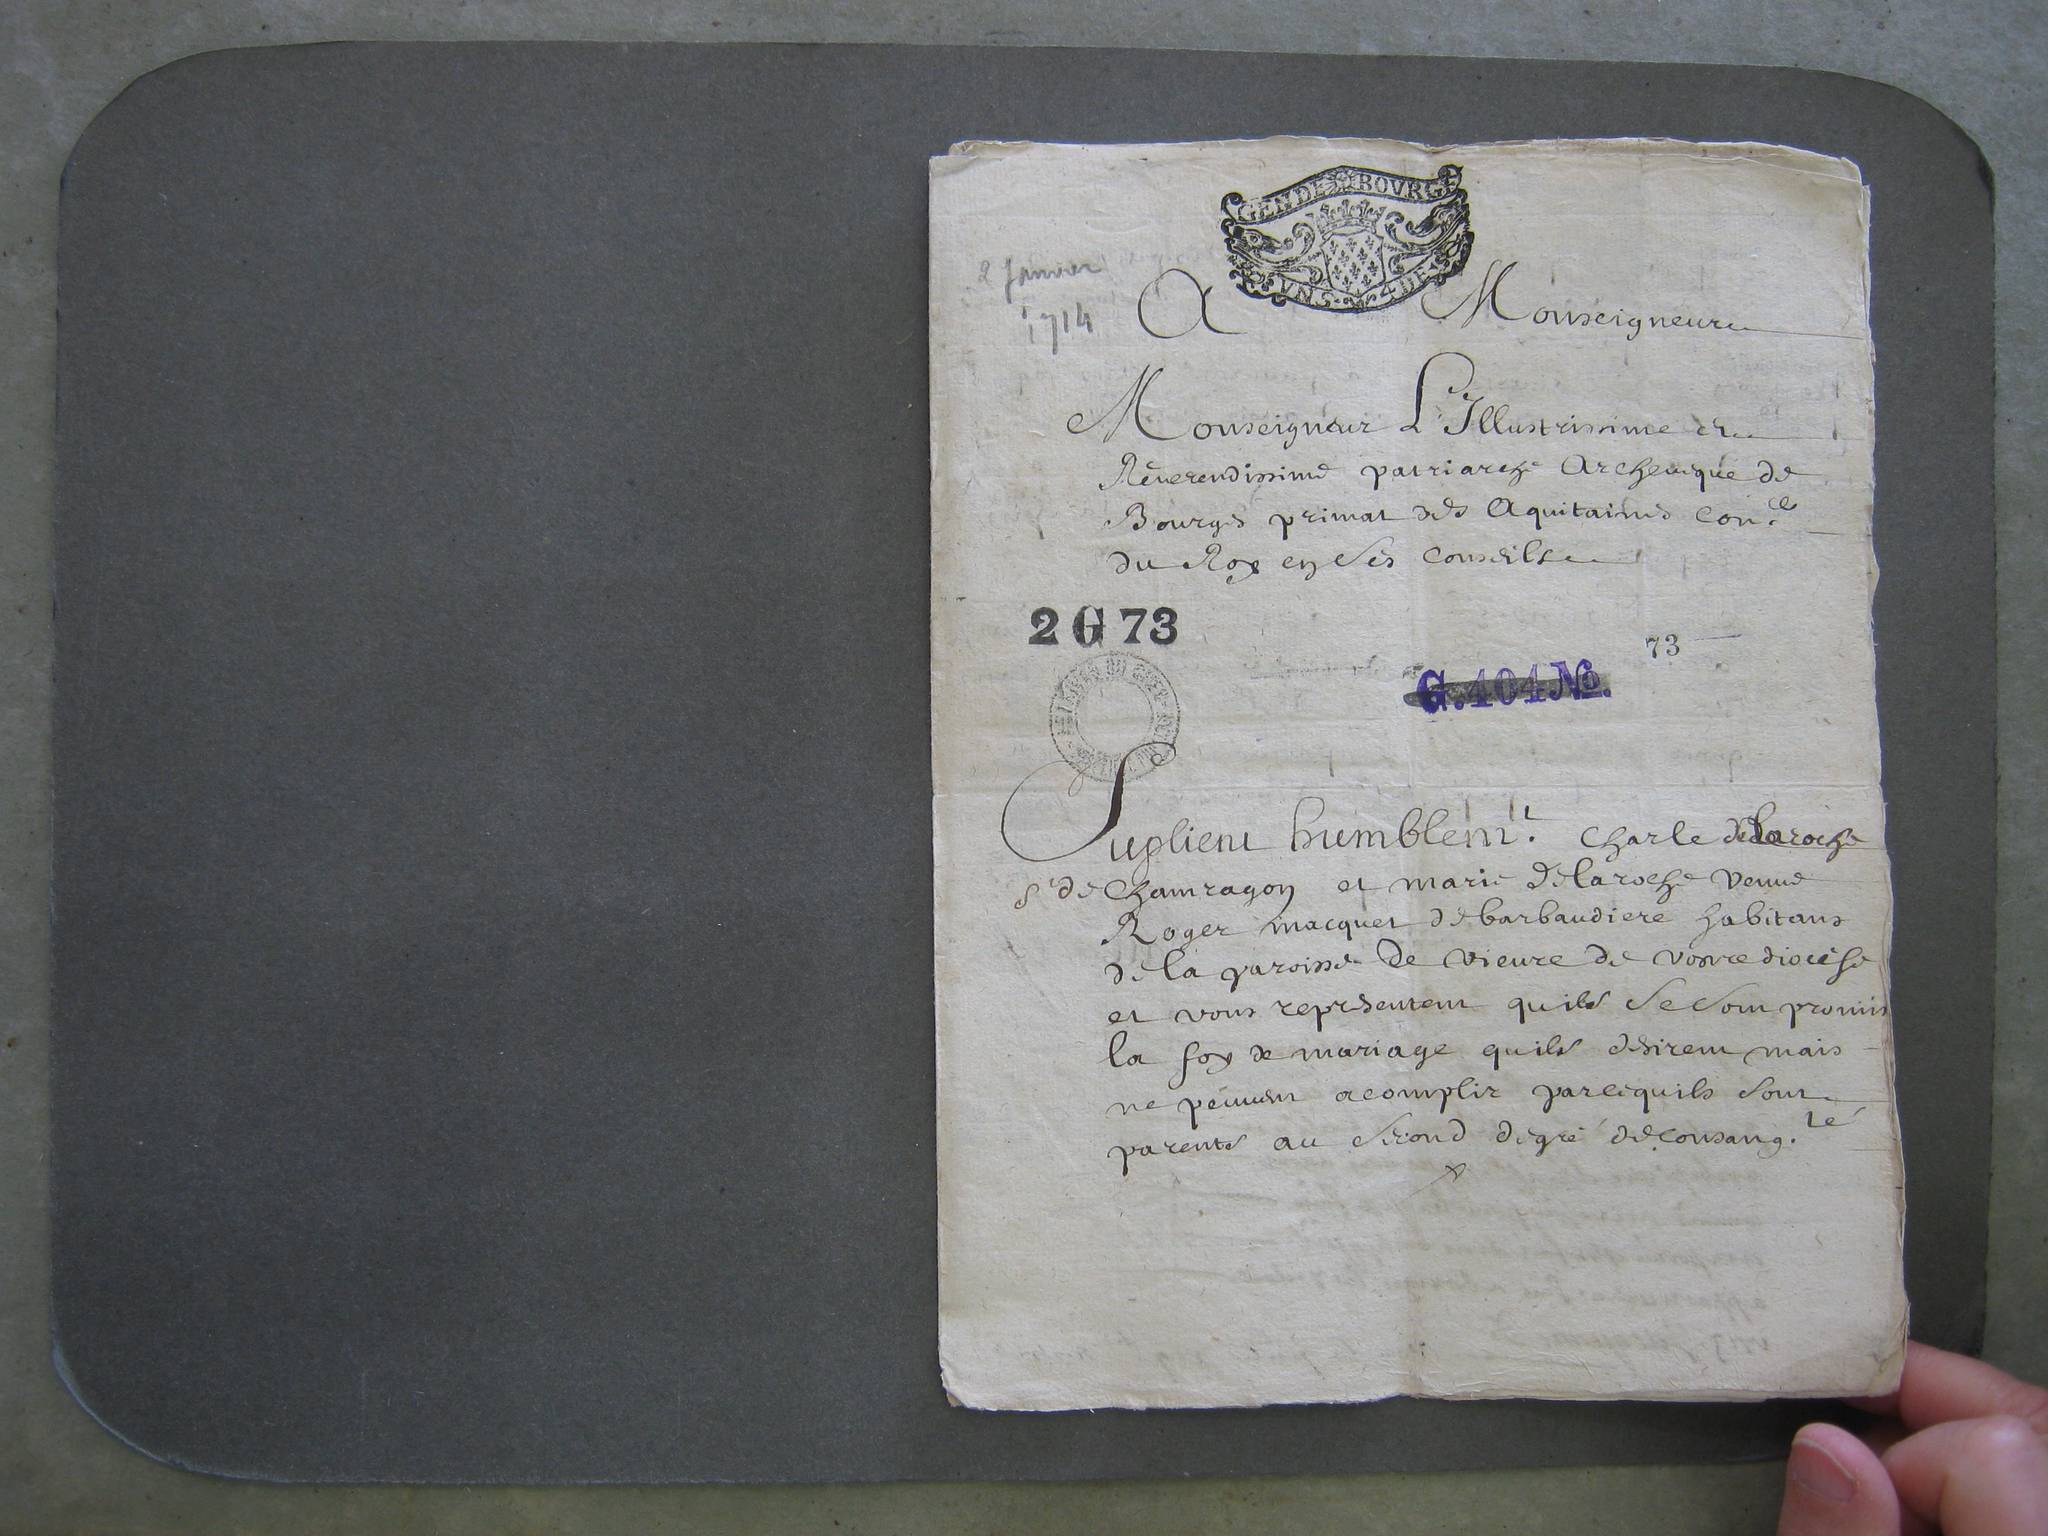 GEN DE BOVRGE
VN S. 4 DE
2 Janvier
1714
A Monseigneur
Monseigneur L'Illustrissime et
Reuerendissime patriarche Archeuêque de
Bourges primat des Aquitaines Con.er
du Roy en Ses Conseils
2 G 73
73
G. 404 No.
Suplient humblemt. Charle de Laroche
Sr. de Chamragon et marie de laroche veuue
Roger macquet de barbaudiere habitans
de la paroisse De vieure de vostre diocese
et vous representent quils Se Sont promis
la foy de mariage quils desirent mais
ne peuuent acomplir parcequils Sont
parents au Second degré de Consang.té